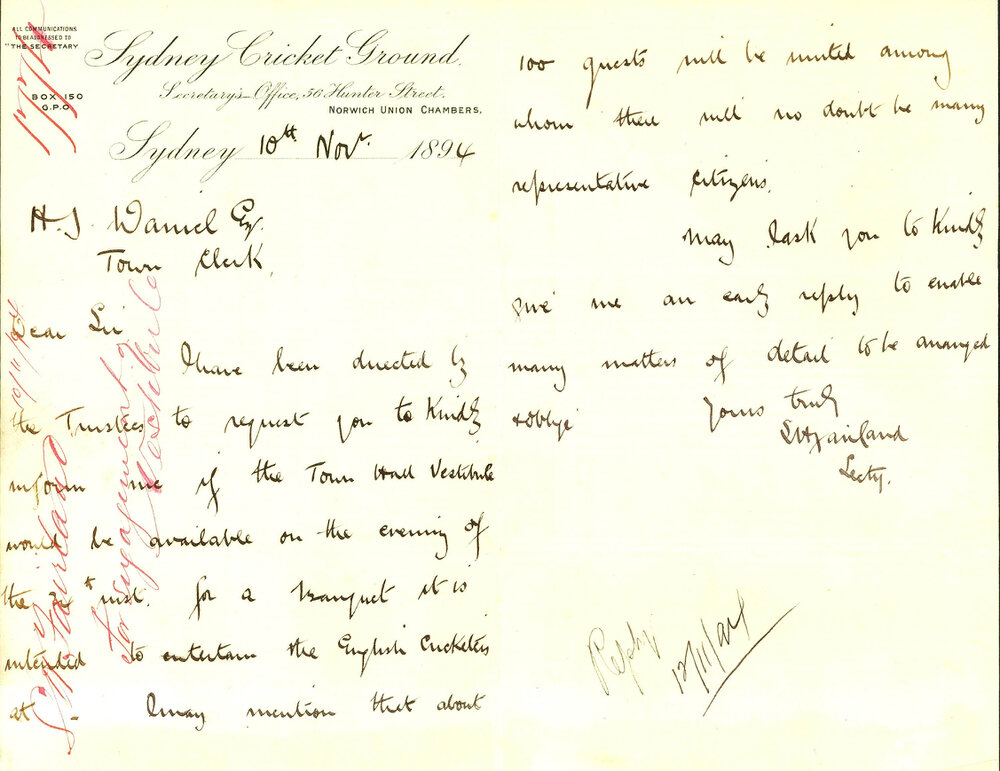 ALL COMMUNICATIONS
TO BE ADDRESSED TO
"THE SECRETARY
BOX 150
G.P.O.
Sydney Cricket Ground.
Secretary's Office, 56 Hunter Street.
NORWICH UNION CHAMBERS.
Sydney 10th Novr. 1894
H. J. Daniel Esq.
Town Clerk,
Dear Sir
I have been directed by
the Trustees to request you to Kindly
inform me if the Town Hall Vestibule
would be available on the evening of
the inst. for a banquet it is
intended to entertain the English Cricketers
at - I may mention that about
100 guests will be invited among
whom there will no doubt be many
representative Citizens.
May I ask you to Kindly
give me an early reply to enable
many matters of detail to be arranged
& oblige
Yours truly
Fairland
Secty.
Reply
12/11/94
10/11/94
Fairland
for engagement of
Vestibule